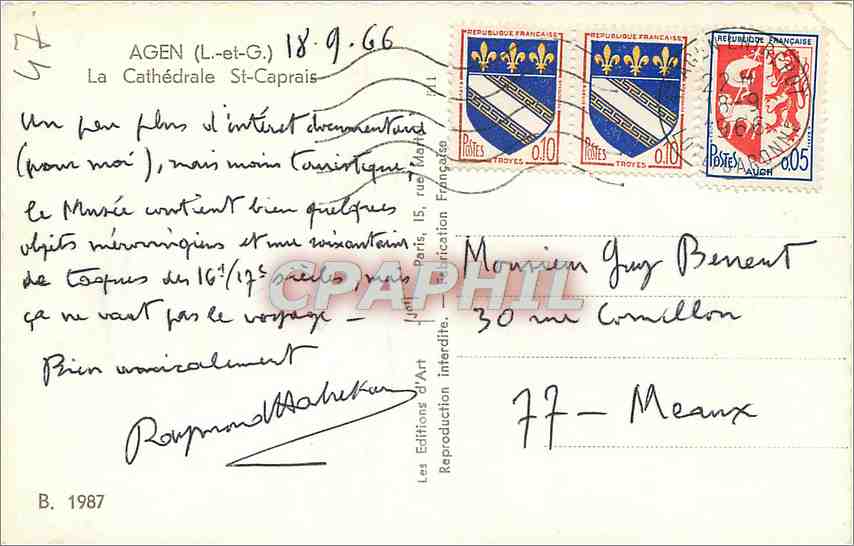 47
AGEN (L.-et-G.) 18.9.66
La Cathédrale St-Caprais
Un peu plus d'intéret documentaire
(pour moi), mais moins touristique,
le Musée contient bien quelques
objets mérovingiens et une soixantaine
de taques des 16e/17e siècles, mais
ça ne vaut pas le voyage –
Bien amicalement
Raymond
B. 1987
Les Editions d'Art Paris, 15, rue Martel
Reproduction interdite. – Fabrication Française
REPUBLIQUE FRANÇAISE
POSTES 0,10
TROYES
REPUBLIQUE FRANÇAISE
POSTES 0,10
TROYES
REPUBLIQUE FRANÇAISE
POSTES 0,05
AUCH
22 H
8-9
1966
LOT-&-GARONNE
Monsieur Guy
30 rue Cornillon
77 – Meaux
CPAPHIL